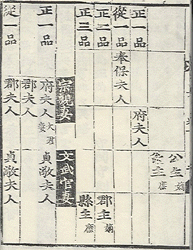 公主嫡
翁主庶
正一品 府夫人
從一品 奉保夫人
正二品 郡主嫡
正三品 縣主庶
宗親妻 文武官妻
正一品 府夫人大君妻 郡夫人 貞敬夫人
從一品 郡夫人 貞敬夫人